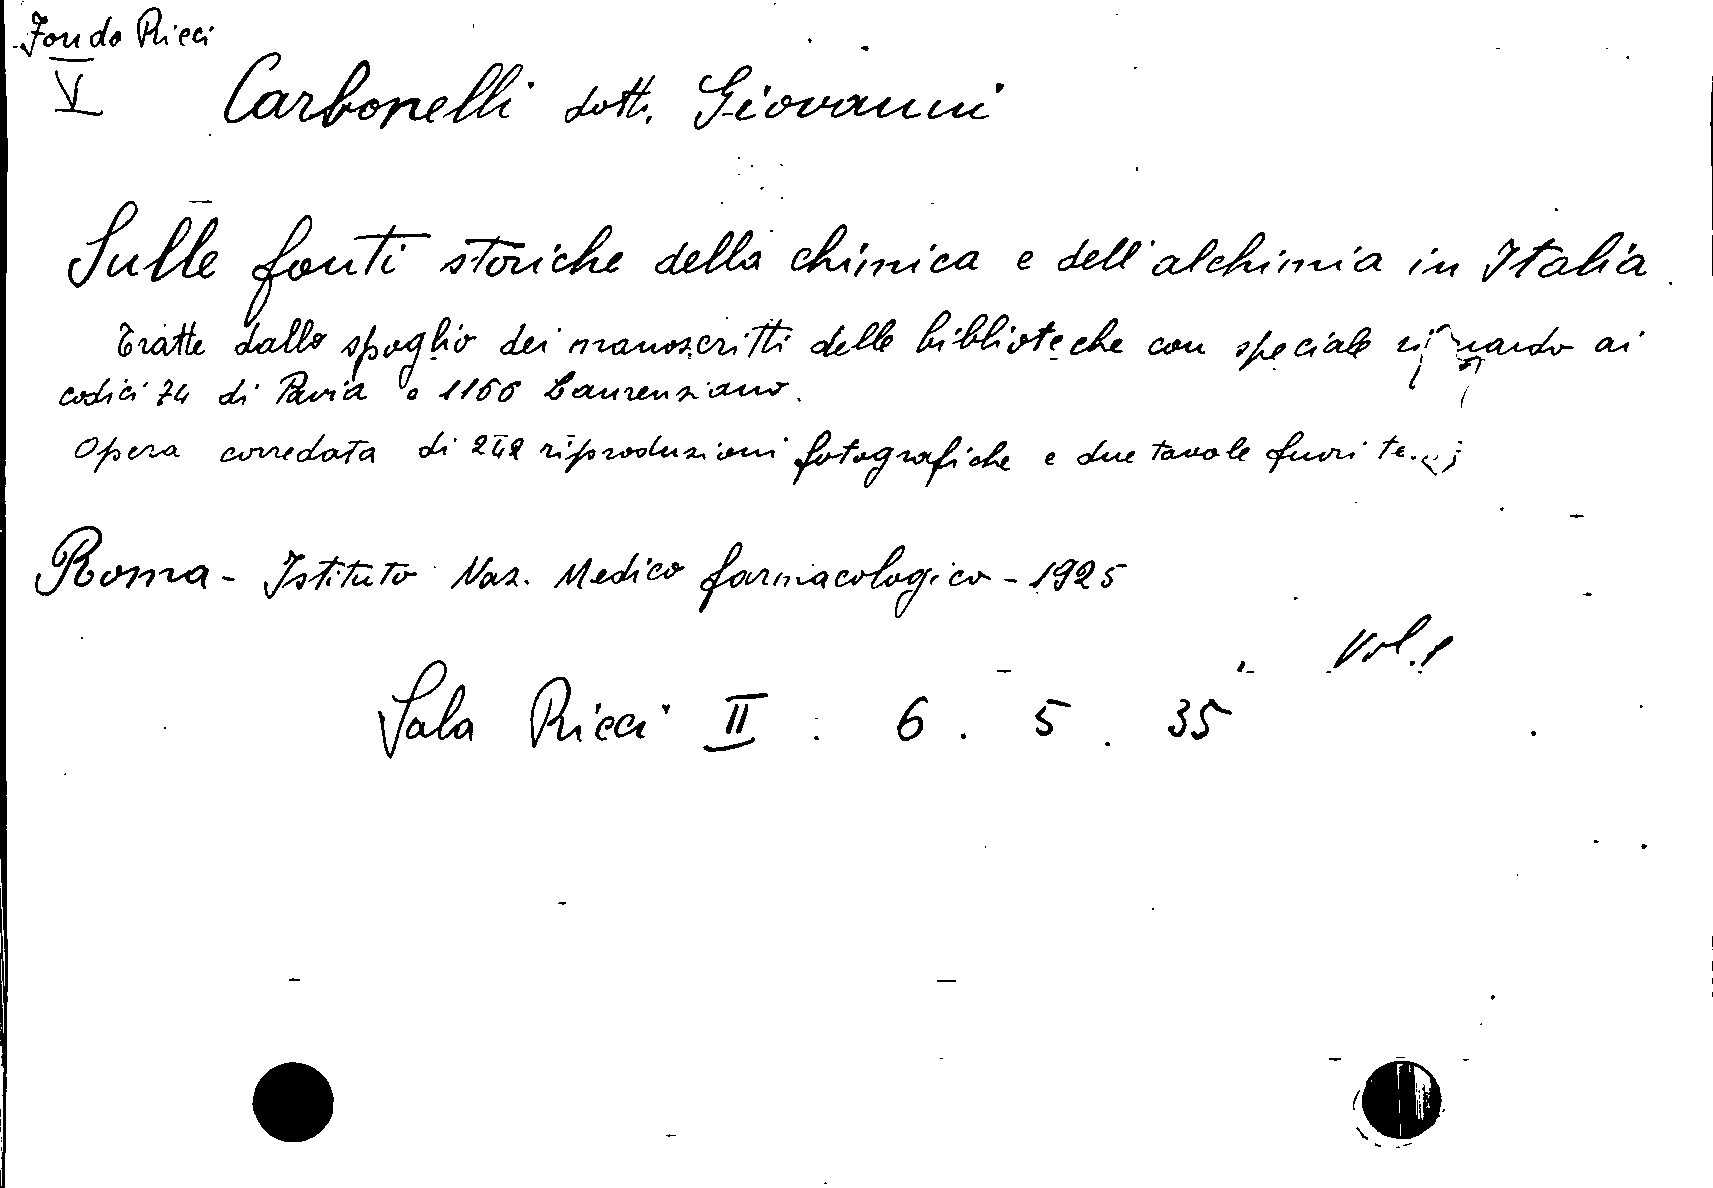 Fondo Ricci
V
Carbonelli dott. Giovanni
Sulle fonti storiche della chimica e dell'alchimia in Italia
Tratte dallo spoglio dei manoscritti delle biblioteche con speciale riguardo ai
codici 74 di Pavia e 1166 Laurenziano.
Opera corredata di 242 riproduzioni fotografiche e due tavole fuori
Roma - Istituto Naz. Medico farmacologico - 1925
Vol. 1
Sala Ricci II . 6 . 5 . 35